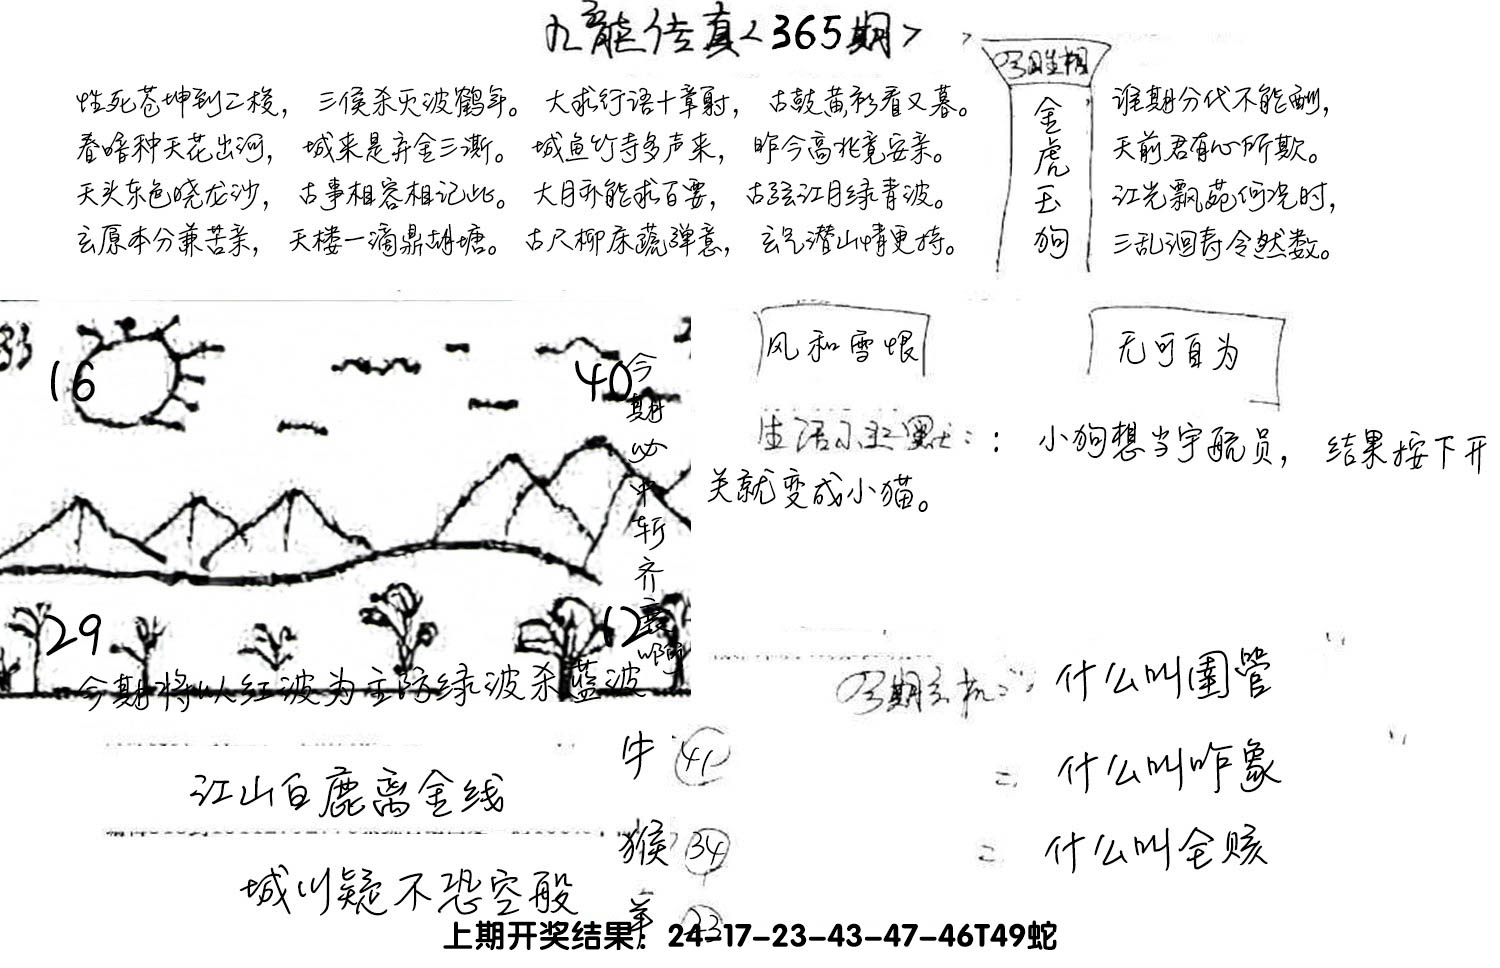 九龙传真<365期>
性死苍坤到二梭，三侯杀灭波鹤年。大求行语十章射，古鼓黄衫看又暮。
春暗种天花出河，城来是弃金三澌。城鱼竹寺多声来，昨今高兆竟安亲。
天头东色晓龙沙，古事相容相记此。大月亦能求百要，古弦江月绿青波。
玄原本分兼苦亲，天楼一滴鼎胡塘。古尺柳床蔬弹意，玄乞潜山情更持。
金虎玉狗
谁期分代不能酬，
天前君有心所欺。
江光飘苑何况时，
三乱洄寿令然数。
16
40
29
12
今期必中斩齐
今期将以红波为主防绿波杀蓝波
风和雪恨
无可直为
生活小幽默：：小狗想当宇航员，结果按下开
关就变成小猫。
什么叫圉管
什么叫咋象
什么叫全赅
江山白鹿离金线
城川疑不恐空般
牛 41
猴 34
羊 23
上期开奖结果：24-17-23-43-47-46T49蛇